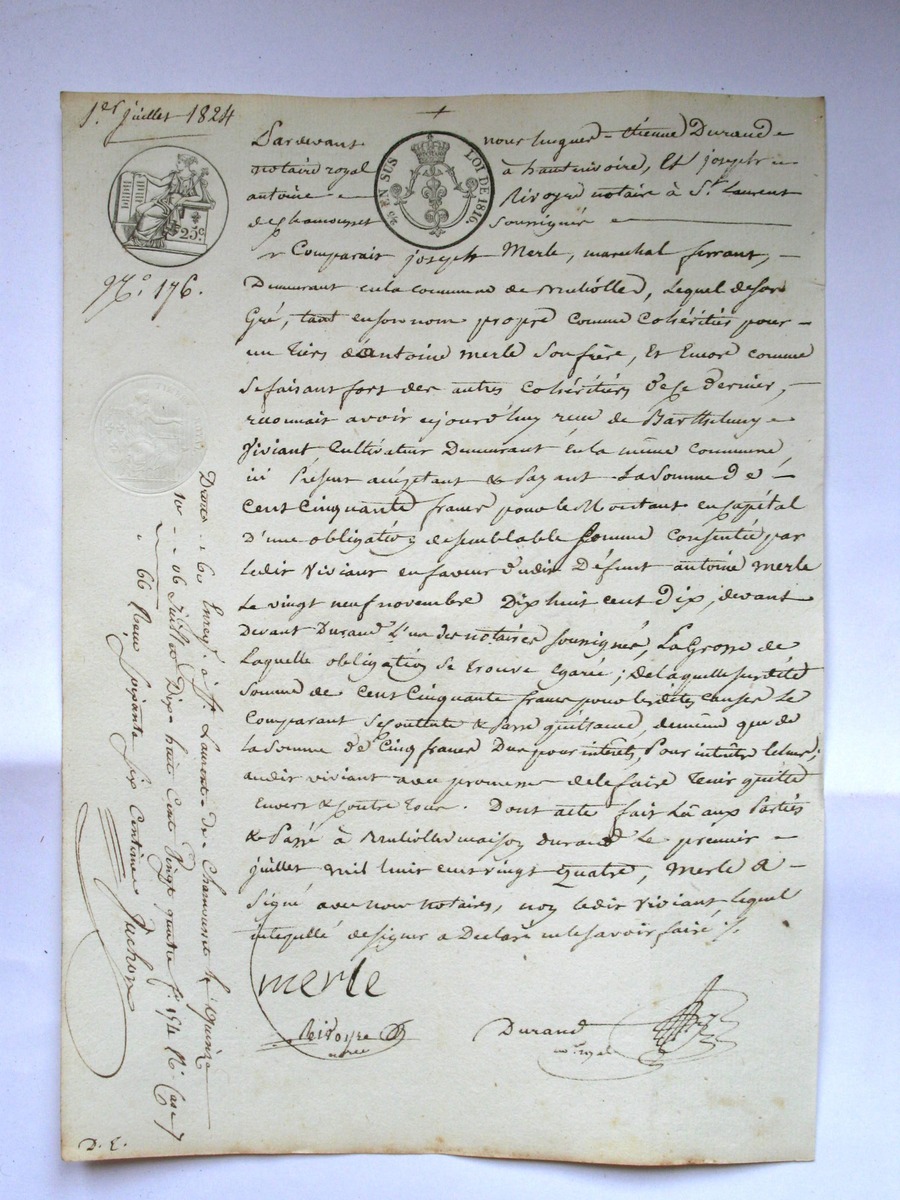 1.er juillet 1824
Pardevant nous hugues-étienne Durand
notaire royal à hauterivoire, Et joseph
antoine Rivoyre notaire à St. Laurent
de Chamousset soussignés
EN SUS LOI DE 1816.
25c
N.o 176.
Comparait joseph Merle, marechal ferrant,
Demeurant en la commune de Brullolles, Lequel de son
Gré, tant en son nom propre comme Cohéritier pour
un tiers d'antoine merle son frère, Et Encor comme
se faisant fort des autres Cohéritiers de ce dernier,
reconnait avoir aujourd'huy reçu de Barthelemy
Viviant Cultivateur Demeurant en la même Commune
ici Présent acceptant & Payant La Somme de
Cent Cinquante francs pour le Montant en Capital
D'une obligation de semblable Somme Consentie par
ledit Viviant en faveur dudit Défunt antoine Merle
Le vingt neuf novembre Dix huit cent dix, devant
Devant Durand L'un des notaires soussignés, La Grosse de
Laquelle obligation se trouve égarée; de laquelle susdite
Somme de Cent Cinquante francs pour lesdites causes Le
Comparant se contente & Passe quittance, de même que de
la Somme de Cinq francs Dus pour intérêts, Pour intérêts
audit viviant avec promesse de le faire tenir quitte
Envers & Contre tous. Dont acte fait Lû aux Parties
& Passé à Brullolles maison Durand Le premier
juillet mil huit cent vingt quatre, Merle a
Signé avec nous notaires, non ledit Viviant Lequel
interpellé de signer a Déclaré ne le savoir faire
merle
Rivoyre
nore
Durand
nre royal
Enregé. à St. Laurent de Chamousset le quinze
Juillet Dix-huit Cent Vingt quatre fo. 154 Ro. Case 7
Reçu soixante six Centimes
D. E.